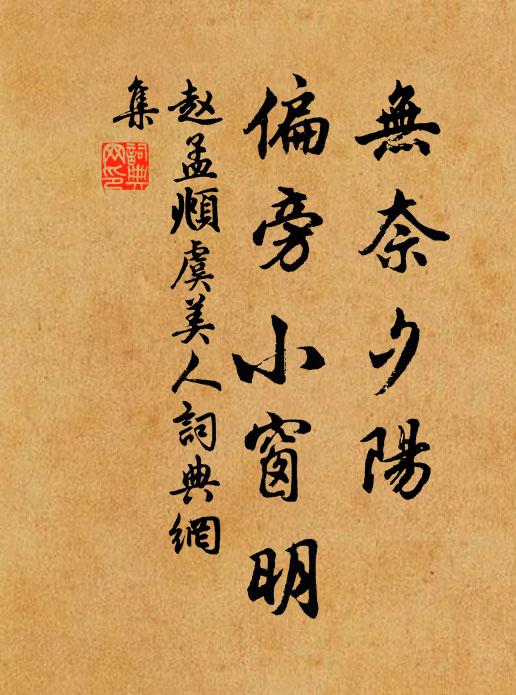 無奈夕陽
偏旁小窗明
赵孟頫虞美人詞典網
集
詞典
网印